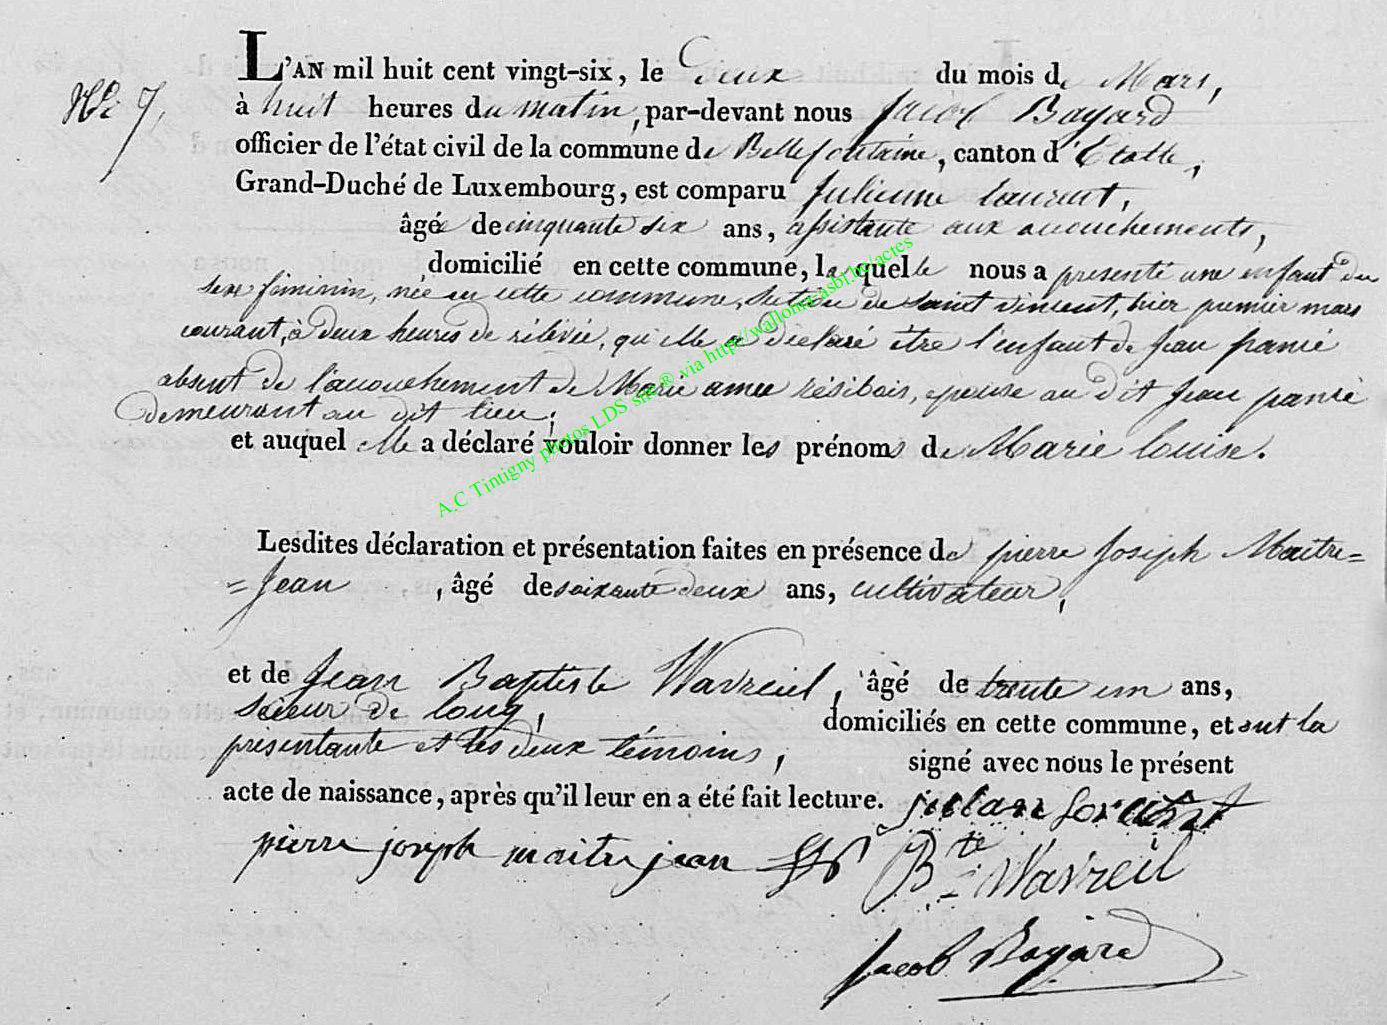 L'AN mil huit cent vingt-six, le deux du mois de Mars,
N° 7,
à huit heures du matin, par-devant nous Jacob Bayard
officier de l'état civil de la commune de Bellefontaine, canton d'Etalle,
Grand-Duché de Luxembourg, est comparu Julienne laurent,
âgée de cinquante six ans, assistante aux accouchements,
domicilié en cette commune, laquelle nous a presenté une enfant du
sexe feminin, née en cette commune, section de saint vincent, hier premier mars
courant, à deux heures de rélévée, qu'elle a déclaré être l'enfant de Jean pansé
absent de l'accouchement de Marie amée résibois, epouse au dit Jean pansé
demeurant au dit lieu;
et auquel elle a déclaré vouloir donner les prénoms de Marie louise.
Lesdites déclaration et présentation faites en présence de pierre Joseph Maitre=
=Jean , âgé de soixante deux ans, cultivateur,
et de Jean Baptiste Wavreil, âgé de trente un ans,
scieur de long, domiciliés en cette commune, et ont la
présentante et les deux témoins, signé avec nous le présent
acte de naissance, après qu'il leur en a été fait lecture.
pierre joseph maitre jean
Bte Wavreil
Jacob Bayard
A.C Tintigny photos LDS site® via http://wallonia-asbl.be/actes